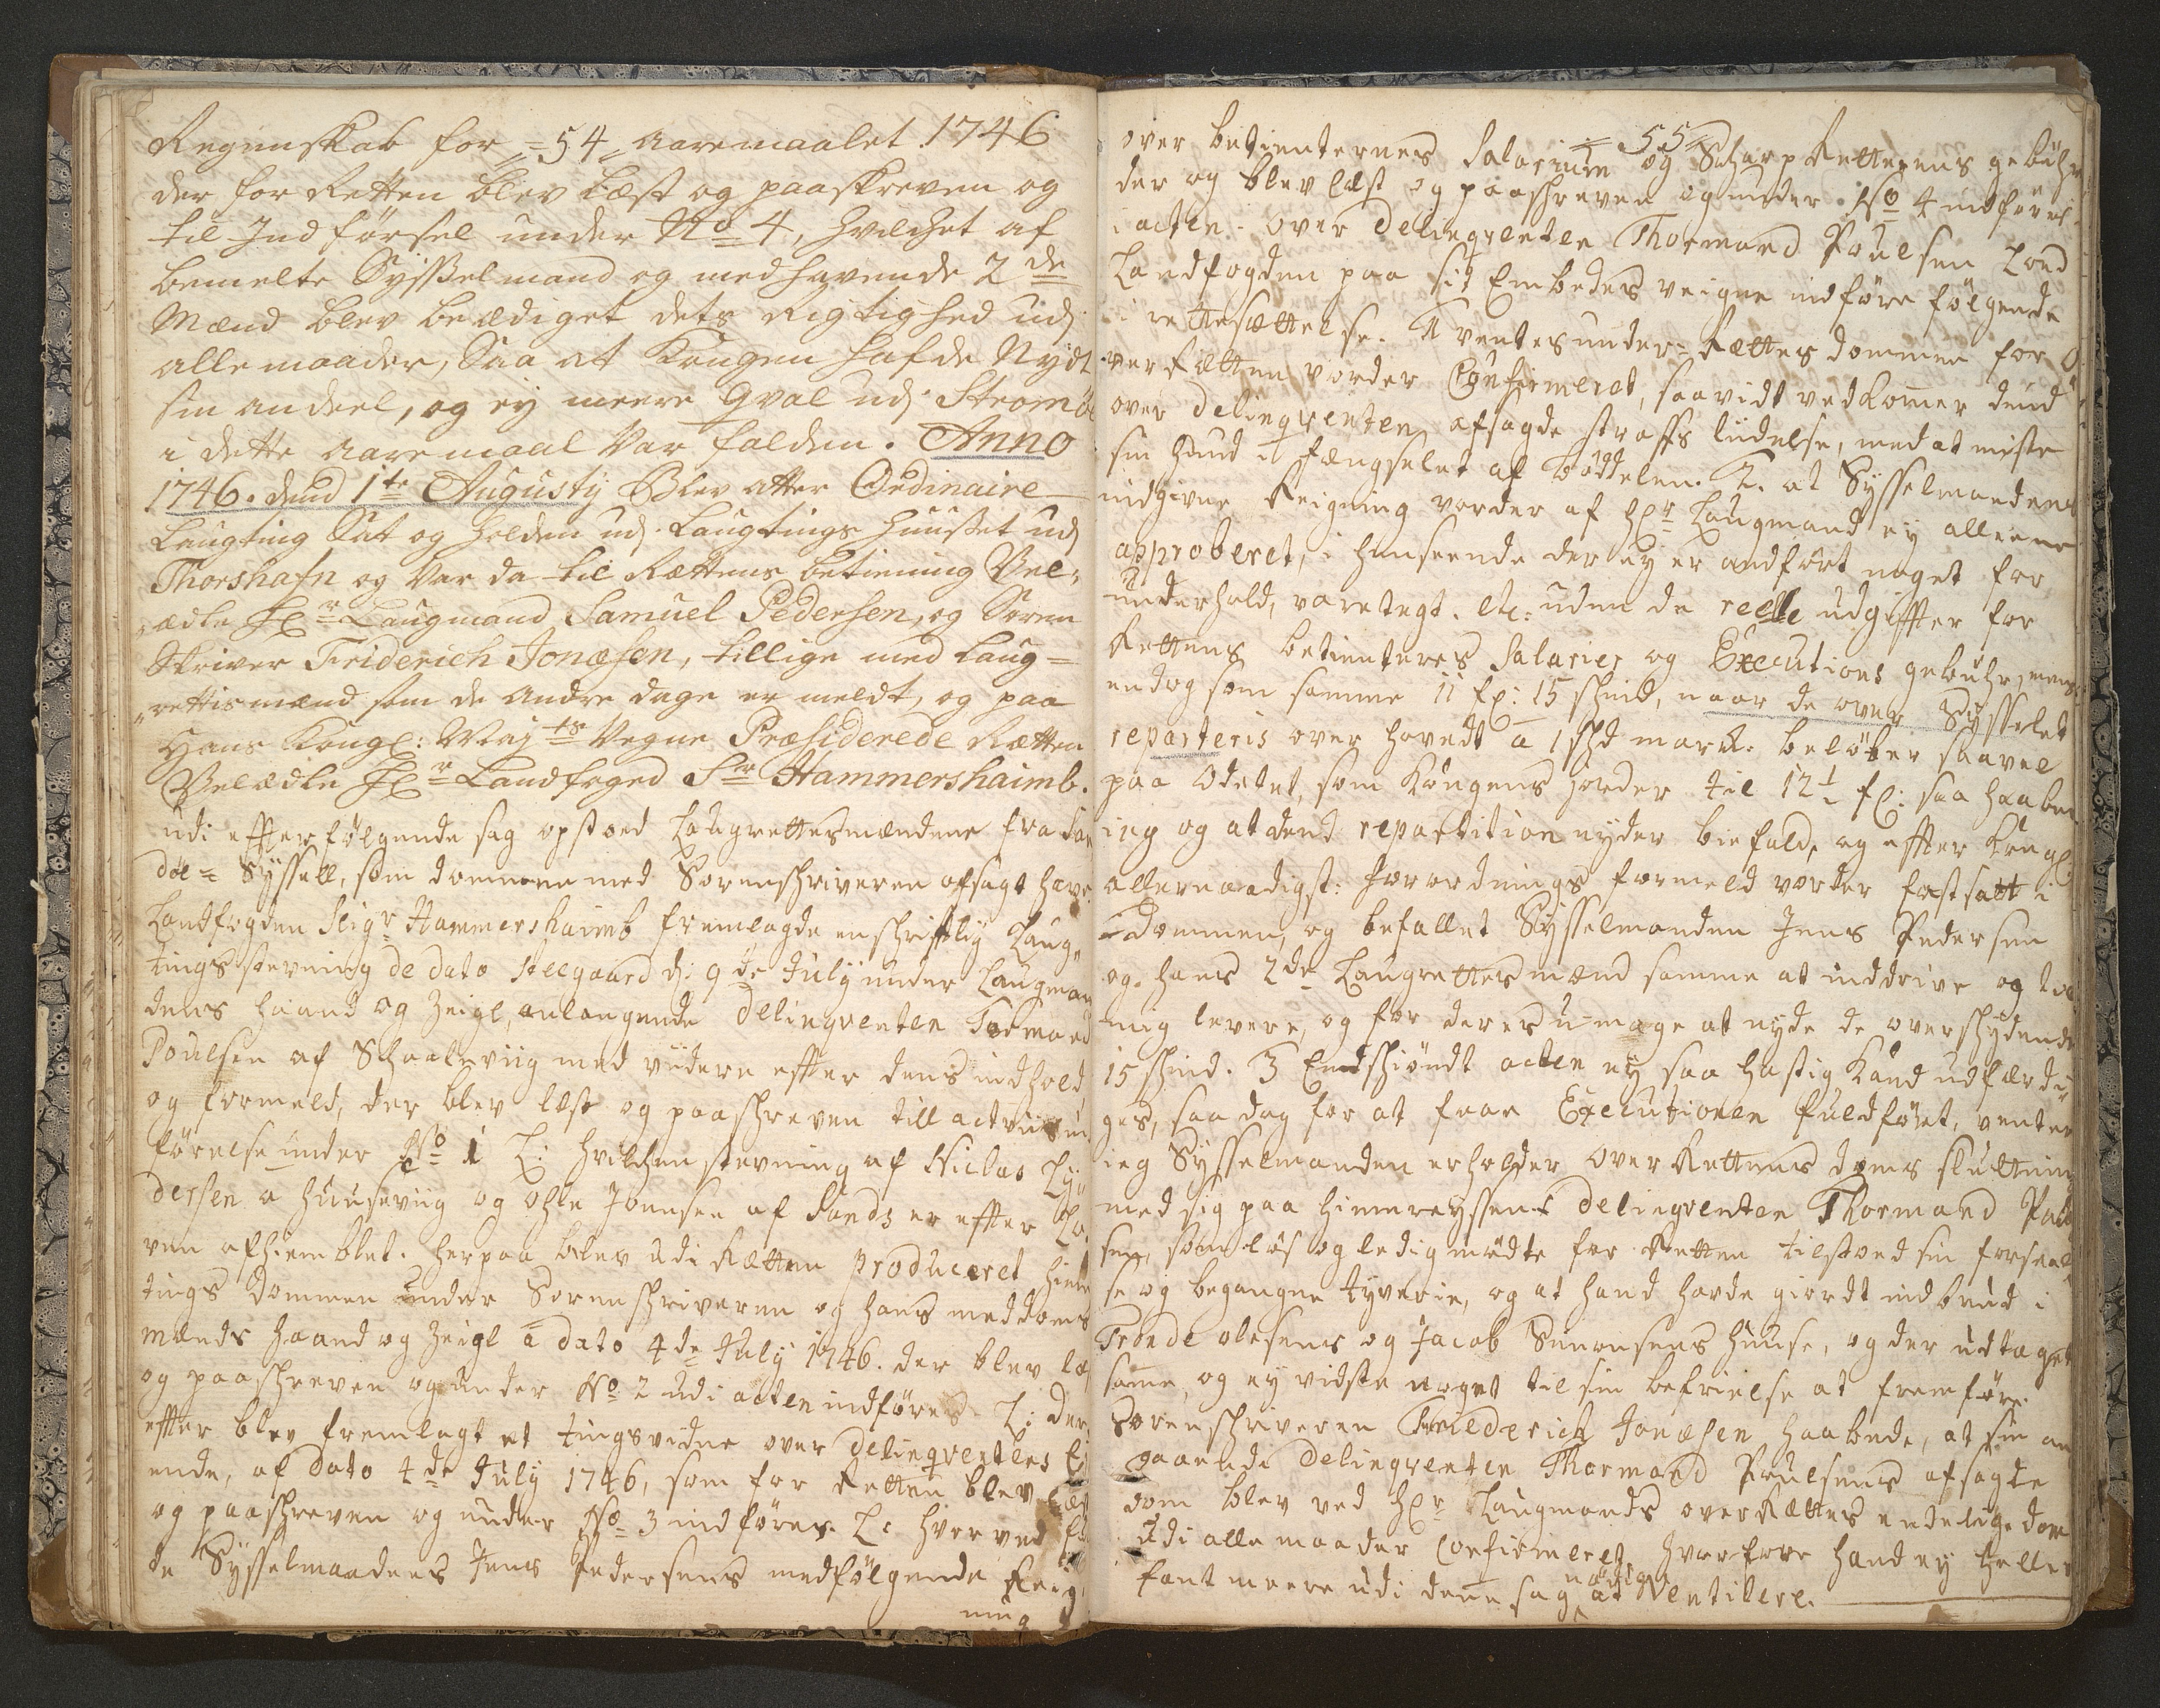 Regenskab for =54= aaremaalet 1746
der for Retten blev læst og paaskreven og
til Indførsel under No 4, hvilchet af
bemelte Sysselmand og medhavende 2de
Mænd blev beædiget dets Rigtighed udj
alle maader, Saa at Kongen hafde Nydt
sin andeel, og ey meere Hval udj Strømø
i dette aaremaal var falden. Anno
1746. dend 1te Augustij Blev atter Ordinaire
Laugting Sat og holden udj Laugtings huusset udj
Thorshafn og Var da til Rættens betiening Vel-
ædle Hr Laugmand Samuel Pedersen, og Soren
Skriver Friderich Jonæsen, tillige med Laug=
rettismænd som de Andre dage er meldt, og paa
Hans Kongl: Majts Vegne Præsiderede Rætten
Velædle Hr Landfoged Sr Hammershaimb.
udi effterfølgende sag opstoed Laugrettesmændene fra San
døe = Syssell, som dommen med Sorenschriveren afsagt have.
Landfogden Seigr Hammershaimb fremlagde en schrifftlig Laug-
tings stevning de dato Steegaard d: 9de July under Laugman
dens haand og Zeigl, anlangende Delinqventen Tormand
Poulsen af Schaaleviig med viidere effter dens indhold
og formeld, der blev læst og paaschreven till acten
førelse under No 1 L: hvilchen stevning af Niclas
dersen a huuseviig og Ohle Jonsen af Sands er effter Lo
ven afhiemblet. herpaa blev udi Rætten produceret hiem
tings Dommen under Sorenschriveren og hans meddoms
mænds haand og Zeigl a dato 4de July 1746. der blev læst
og paaschreven og under No 2 udi acten indføres. L: der
effter blev fremlagt et tingsvidne over delinqventens Ei
ende, af dato 4de July 1746, som for Retten blev læst
og paaschreven og under No 3 indføres. L: hvorved
de Sysselmandens Jens Pedersens medfølgende Reig
ning
= 55
over betienternes Salarium og Scharp Retterens gebühr
der og blev læst og paaschreven og under No 4 indføres
i acten. over Delinqventen Thormand Poulsen Loed
Landfogden paa sit Embedes veigne indføre følgende
i rettesættelse. 1 ventes under=Rættes dommen for O
verRætten vorder Confirmeret, saavidt vedkomer dend
over delinqventen afsagde straffs liidelse, med at miste
sin haud i fængselet af bøddelen. 2. at Sysselmandens
indgivne Reigning vorder af Hr Laugmand ey alleene
approberet, i henseende der ey er andført noget for
underhold, varetegt. etc: uden de reelle udgiffter for
Rettens betienteres Salarier og Executions gebuhr, men
endog som samme 11 fl: 15 schind, naar de over Sysselet
reparteris over hovedt a 1 schd mark. beløber saavel
paa Odelet, som Kongens jorder til 12½ fl: saa haaber
ieg og at dend repartition nyder biefald, og effter Kongl:
allernaadigst: forordnings formeld vorder fastsatt i
Dommen, og befallet Sysselmanden Jens Pedersen
og hans 2de Laugrettesmænd samme at inddrive og til
mig levere, og for deres umage at nyde de overschydende
15 schind. 3 Endschiøndt acten ey saa hastig Kand udfærdi
ges, saa dog for at faae Executionen fuldført, venter
ieg Sysselmanden erholder OverRettens doms slutning
med sig paa hiemreyssen. Delinqventen Thormand Poul
sen, som løs og ledig mødte for Retten tilstoed sin forseel
se og begangne tyverie, og at hand havde giordt indbrud i
Trønde olesens og Jacob Simonsens huuse, og der udtaget
same, og ey vidste noget til sin befrielse at fremføre.
Sorenschriveren Friederich Jonæsen haabede, at sin an
gaaende Delinqventen Thormand Poulsens afsagde
dom blev ved Hr Laugmands overRættes endelige dom
udi alle maader Confirmeret, hvorfore hand ey heller
fant meere udi denne sag nødig at Ventilere.